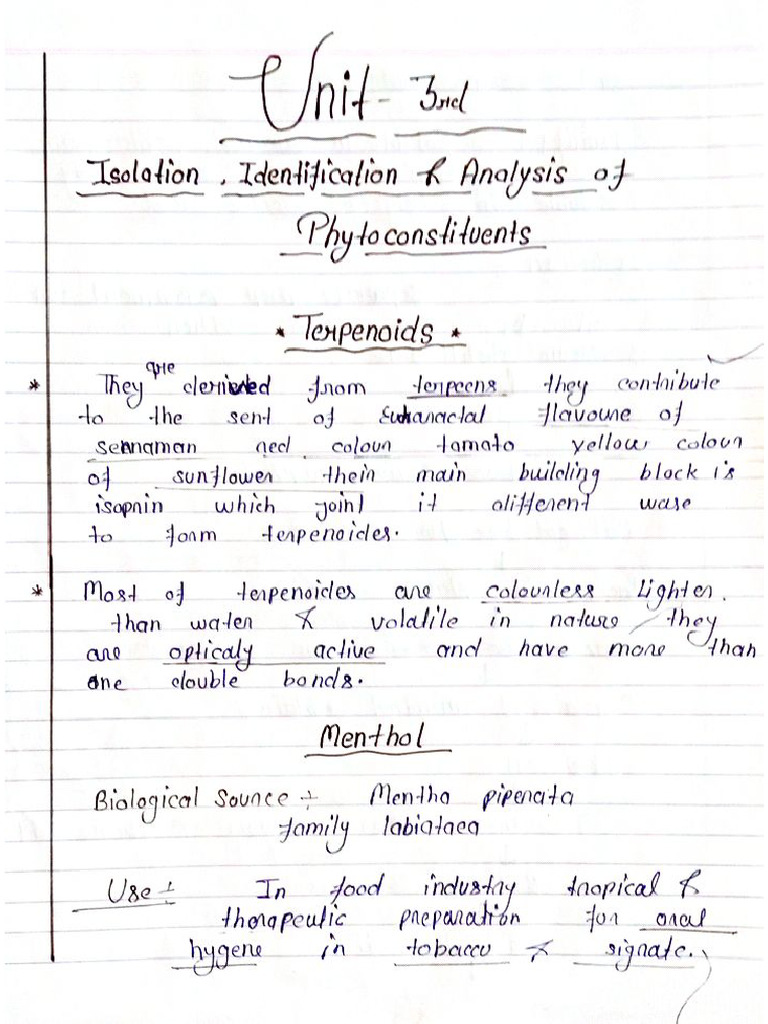 Unit - 3rd
Isolation, Identification & Analysis of
Phytoconstituents
* Terpenoids *
are
* They derived from terpeens they contribute
to the sent of flavoure of
sennaman red colour tomato yellow colour
of sunflower their main building block is
isoprin which joint it different wase
to form terpenoides.
* Most of terpenoides are colourless lighter.
than water & volatile in nature they
are opticaly active and have more than
one double bonds.
Menthol
Biological Source ÷ Mentha piperata
family labiataea
Use ÷ In food industry tropical &
therapeutic preparation for oral
hygene in tobacco & signate.